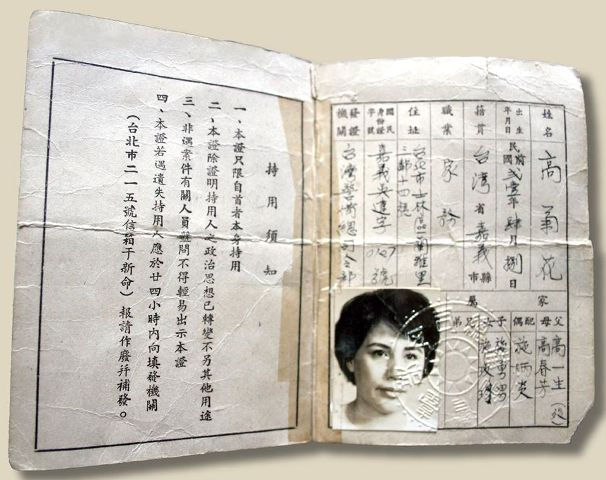 持用須知
一、本證只限自首者本身持用
二、本證除證明持用人之政治思想已轉變不另其他用途
三、非遇案件有關人員盤問不得輕易出示本證
四、本證若遇遺失持用人應於廿四小時內向填發機關
(台北市二一五號信箱于新命)報請作廢并補發。
姓名 高菊花
出生年月日 民國 貳壹年肆月捌日
籍貫 台灣省嘉義縣市
職業 家務
住址 台北市士林區蘭雅里
國民身份證字號 嘉義吳達字 號
發證機關 台灣警備總司令部
家屬
父 高一生(歿)
母 高春芳
配偶 施
子女
兄弟